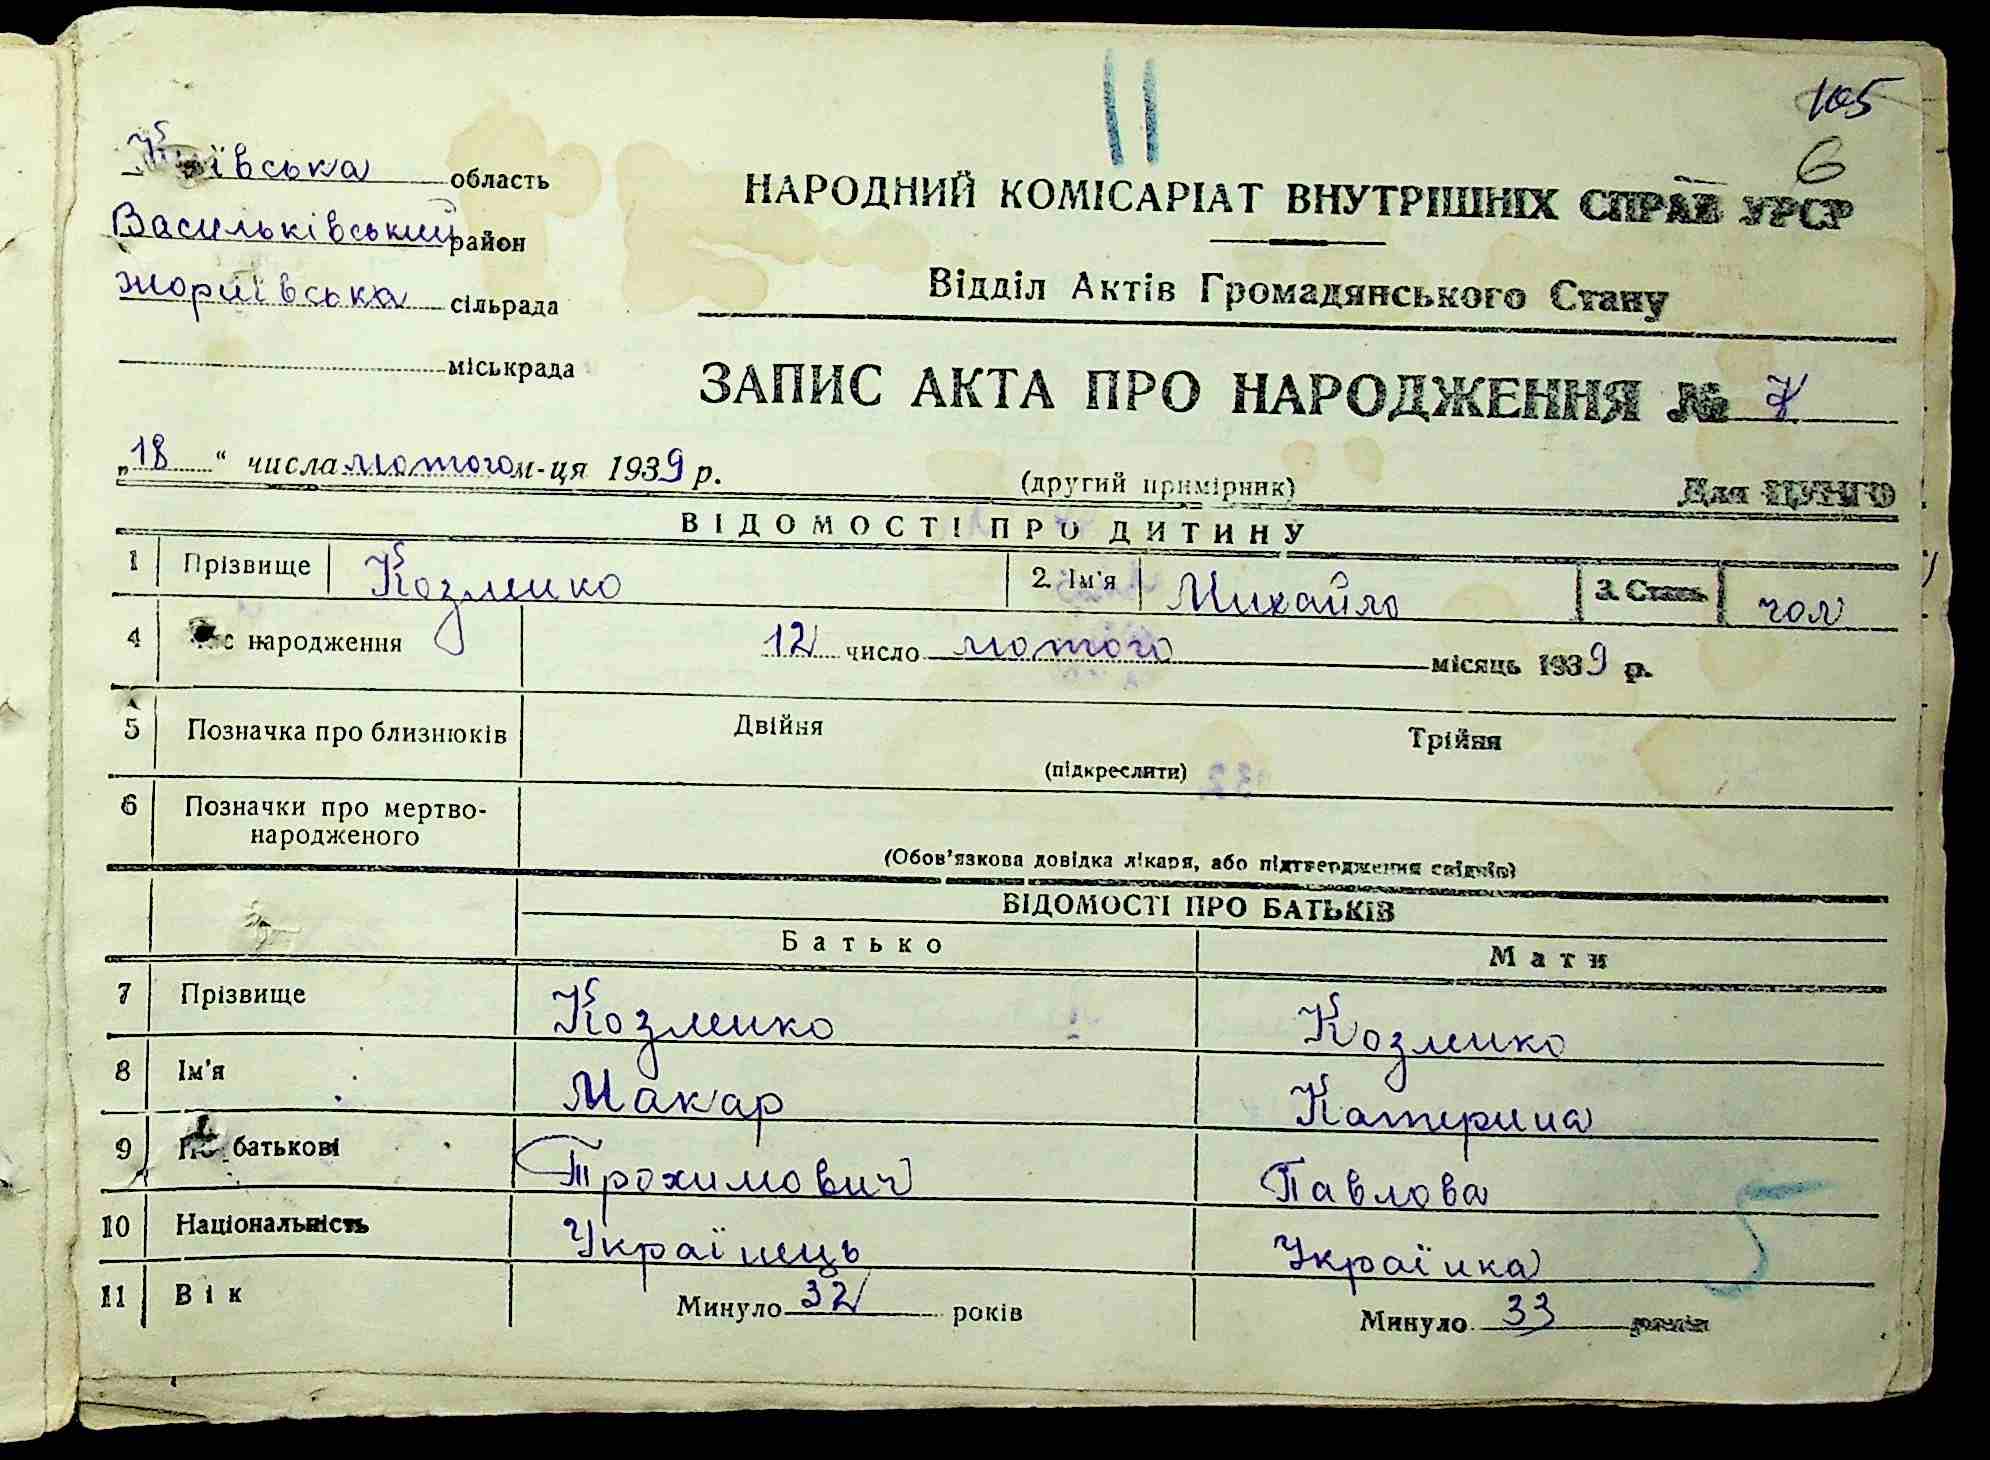 11
105
6
Київська область
Васильківський район
Жорнівська сільрада
міськрада
НАРОДНИЙ КОМІСАРІАТ ВНУТРІШНІХ СПРАВ УРСР
Відділ Актів Громадянського Стану
ЗАПИС АКТА ПРО НАРОДЖЕННЯ № 7
„18“ числа лютого м-ця 1939 р.
(другий примірник) Для ЦУНГО
ВІДОМОСТІ ПРО ДИТИНУ
1 Прізвище Козленко 2. Ім'я Михайло 3. Стать чол
4 Час народження 12 число лютого місяць 1939 р.
5 Позначка про близнюків Двійня Трійня
(підкреслити)
6 Позначки про мертво-
народженого
(Обов'язкова довідка лікаря, або підтвердження свідків)
ВІДОМОСТІ ПРО БАТЬКІВ
Батько Мати
7 Прізвище Козленко Козленко
8 Ім'я Макар Катерина
9 По батькові Трохимович Павлова
10 Національність Українець Українка
5
11 Вік Минуло 32 років Минуло 33 років